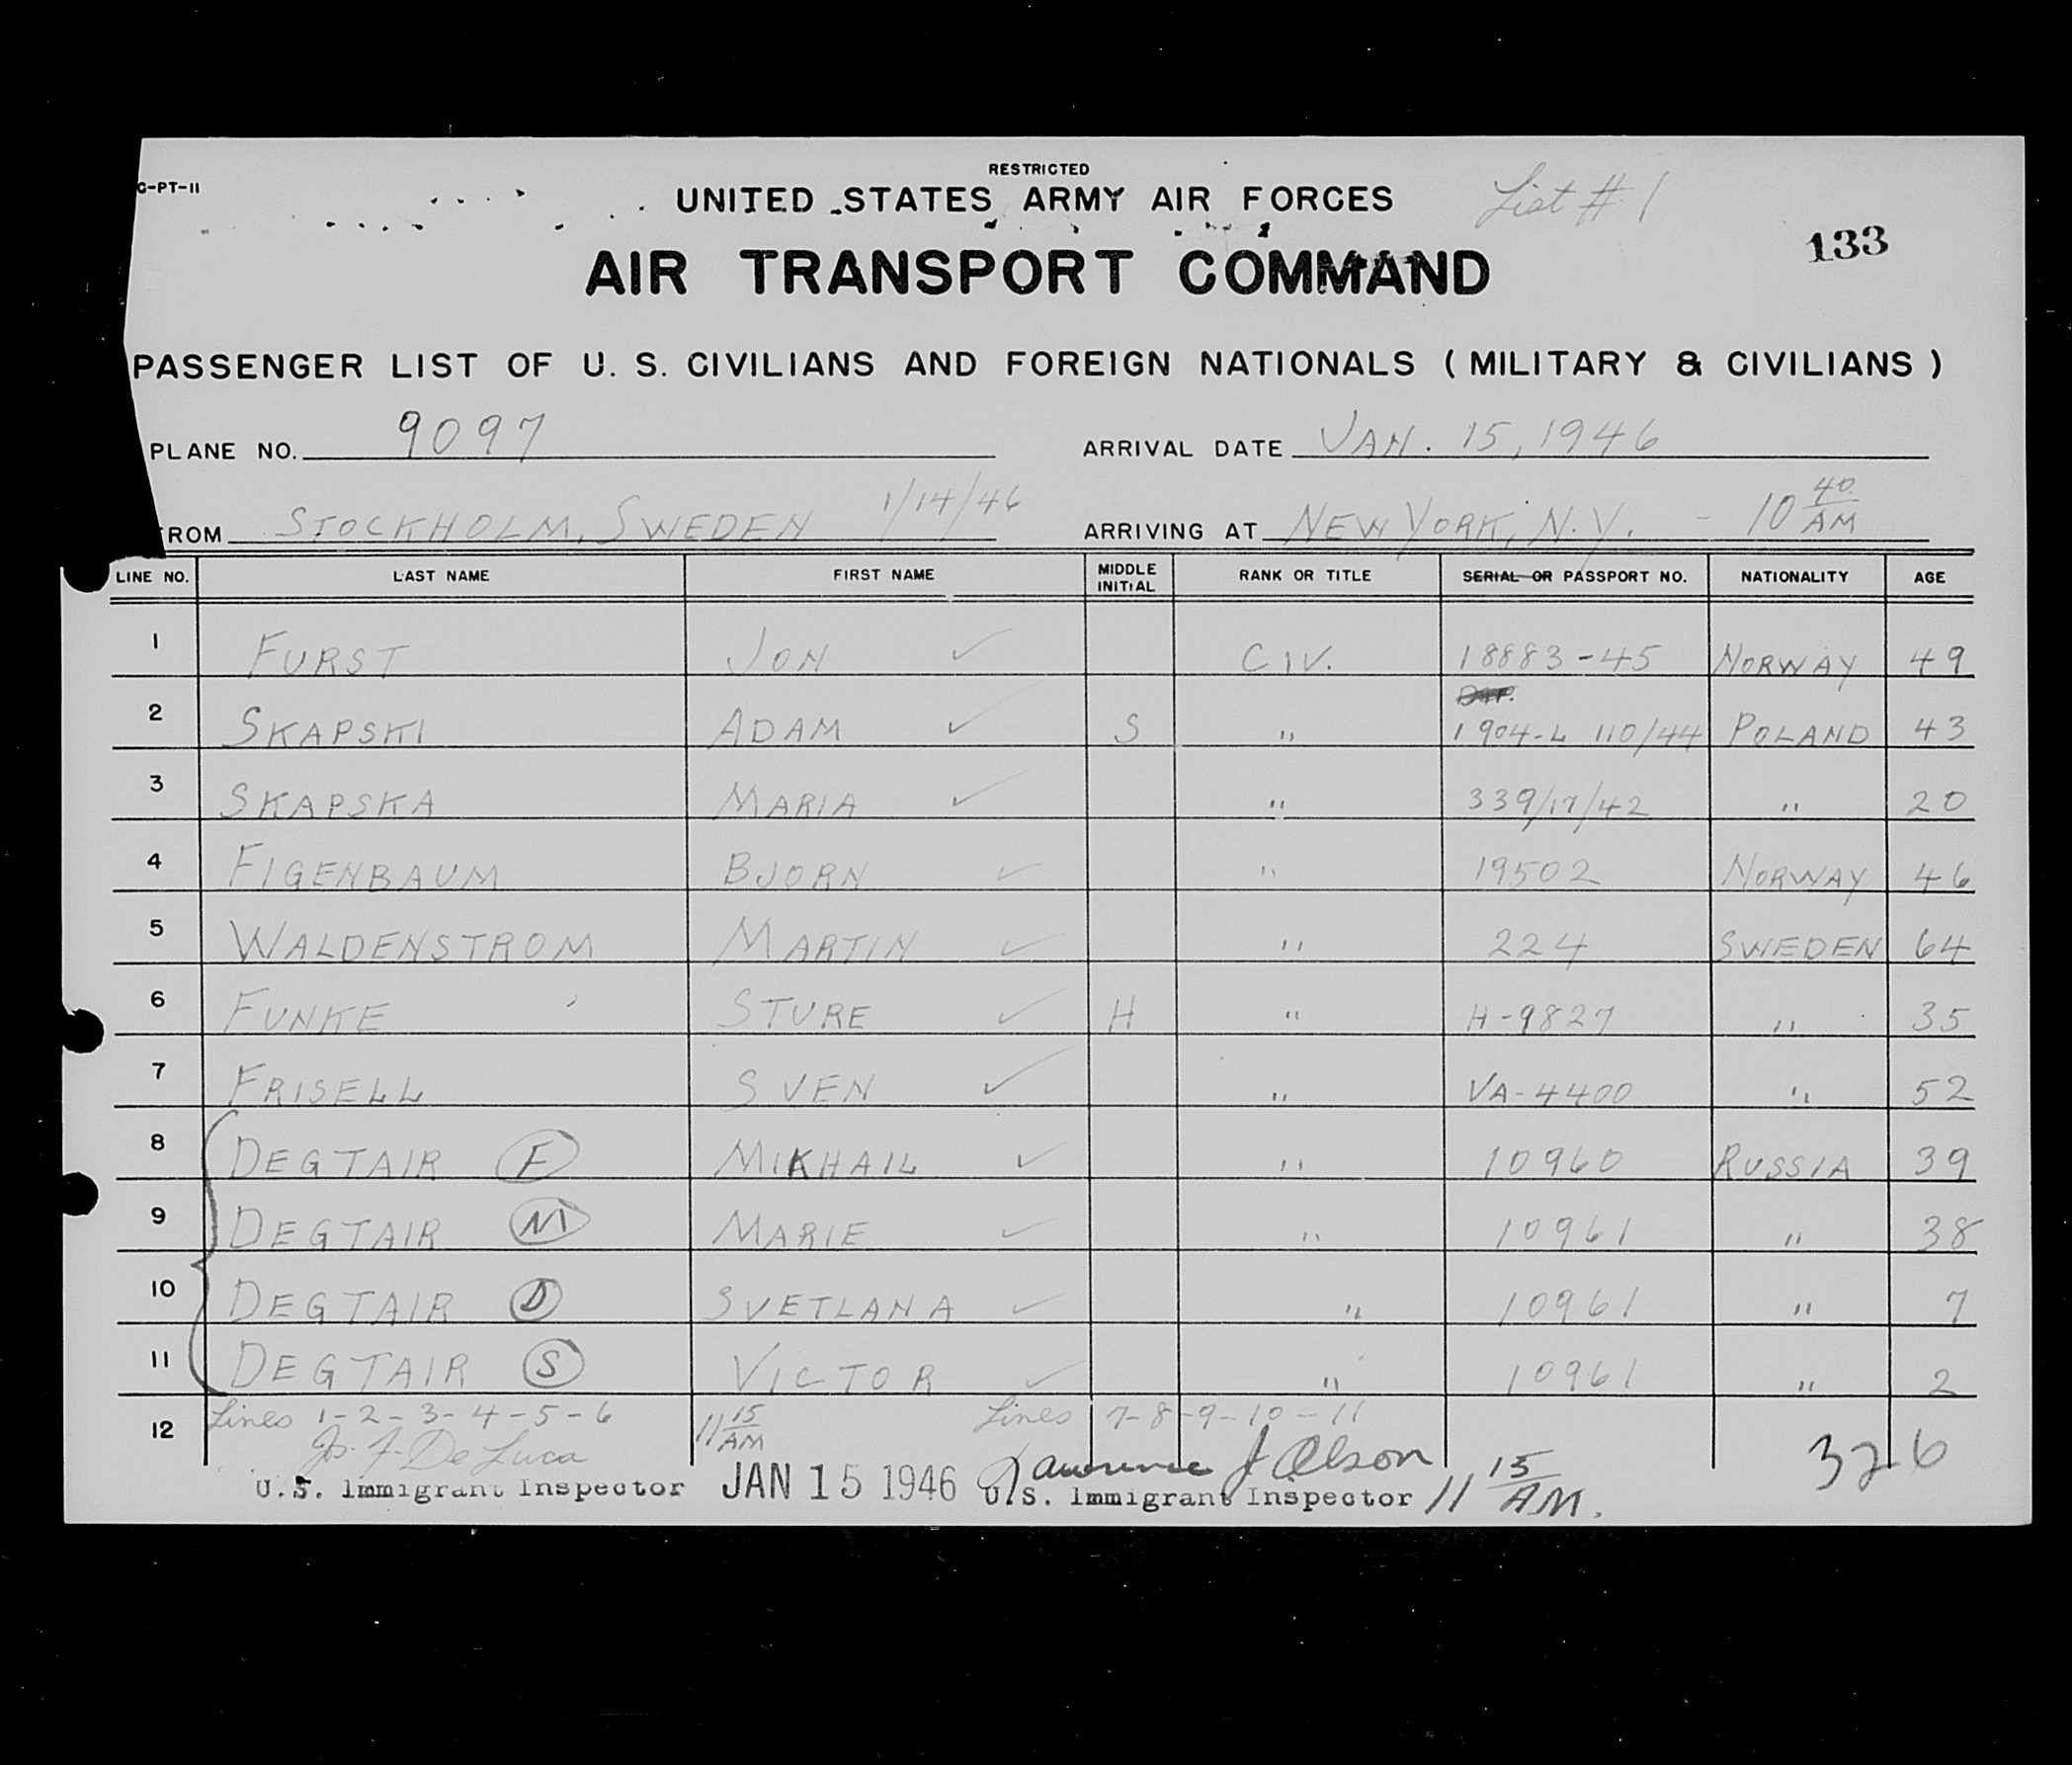 C-PT-11
RESTRICTED
UNITED STATES ARMY AIR FORCES
List # 1
133
AIR TRANSPORT COMMAND
PASSENGER LIST OF U. S. CIVILIANS AND FOREIGN NATIONALS ( MILITARY & CIVILIANS )
PLANE NO. 9097 ARRIVAL DATE JAN. 15, 1946
FROM STOCKHOLM, SWEDEN 1/14/46 ARRIVING AT NEW YORK, N.Y. - 10 40 AM
LINE NO. LAST NAME FIRST NAME MIDDLE INITIAL RANK OR TITLE SERIAL OR PASSPORT NO. NATIONALITY AGE
1 FURST JON ✓ CIV. 18883-45 NORWAY 49
2 SKAPSKI ADAM ✓ S " 1904-L 110/44 POLAND 43
3 SKAPSKA MARIA ✓ " 339/17/42 " 20
4 FIGENBAUM BJORN ✓ " 19502 NORWAY 46
5 WALDENSTROM MARTIN ✓ " 224 SWEDEN 64
6 FUNKE STURE ✓ H " H-9827 " 35
7 FRISELL SVEN ✓ " VA-4400 " 52
8 DEGTAIR F MIKHAIL ✓ " 10960 RUSSIA 39
9 DEGTAIR M MARIE ✓ " 10961 " 38
10 DEGTAIR D SVETLANA ✓ " 10961 " 7
11 DEGTAIR S VICTOR ✓ " 10961 " 2
12 Lines 1-2-3-4-5-6 11 15 AM Lines 7-8-9-10-11
Jos. F. De Luca Lawrence J Olson 11 15 AM. 326
U.S. Immigrant Inspector JAN 15 1946 U.S. Immigrant Inspector